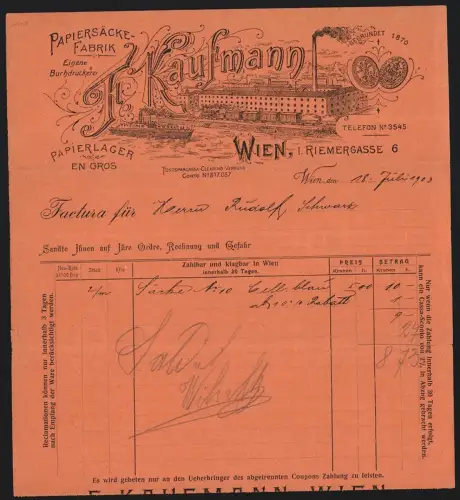 PAPIERSÄCKE-
FABRIK
Eigene
Buchdruckerei
Fr. Kaufmann
GEGRÜNDET 1870
TELEFON Nº 3545
PAPIERLAGER
EN GROS
WIEN, I. RIEMERGASSE 6
POSTSPARCASSA-CLEARING-VERKEHR
CONTO Nº 817.057
Wien, am 18. Juli 1903
Factura für Herrn Rudolf Schwarz
Sandte Ihnen auf Ihre Ordre, Rechnung und Gefahr
Zahlbar und klagbar in Wien
innerhalb 30 Tagen.
PREIS
BETRAG
Kronen
h
Kronen
h
2/m Säcke No 10 Cell. blau 5.00 10 -
ab 10% Rabatt 1 -
9 -
27
8 73
Saldi
Reclamationen können nur innerhalb 3 Tagen
nach Empfang der Ware berücksichtigt werden.
Nur wenn die Zahlung innerhalb 30 Tagen erfolgt,
kann ein Cassa-Sconto von 3% in Abzug gebracht werden.
Es wird gebeten nur an den Ueberbringer des abgetrennten Coupons Zahlung zu leisten.
F. KAUFMANN, WIEN